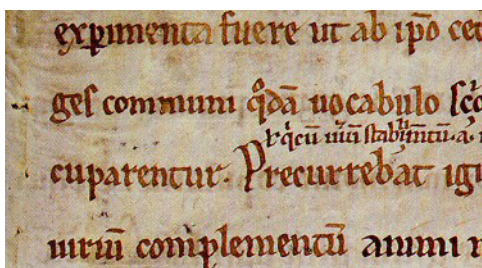 exp̱imenta fuere ut ab ip̄o ce
ges communi q̊dā uocabulo sc̄o
cuparentur. Precurrebat igi
uiriū complementū animi